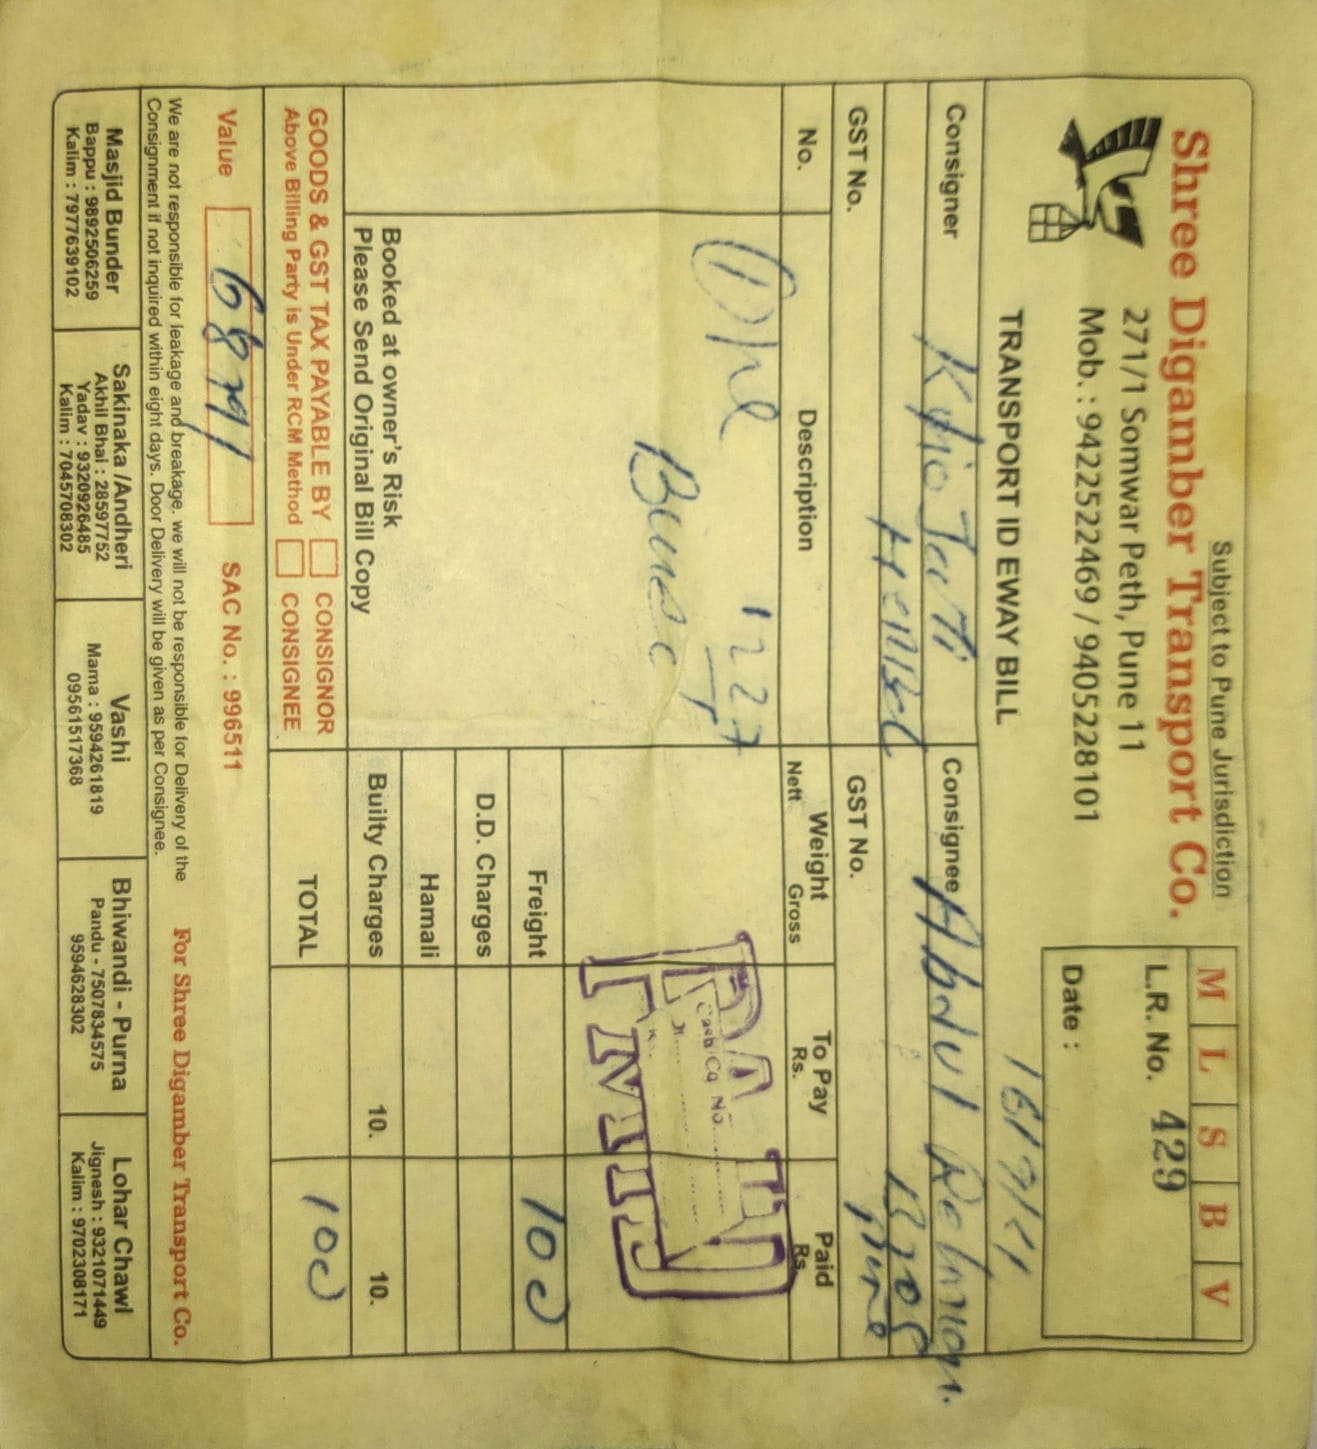 Subject to Pune Jurisdiction
Shree Digamber Transport Co.
271/1 Somwar Peth, Pune 11
Mob. : 9422522469 / 9405228101
TRANSPORT ID EWAY BILL
M L S B V
L.R. No. 429
Date :
Consigner
Consignee Abdul Rehman.
Bros
Pune
GST No. GST No.
No. Description Weight Nett Gross To Pay Rs. Paid Rs.
One
1227
PAID
Cash/Cq No.
Freight 100
D.D. Charges
Hamali
Builty Charges 10. 10.
TOTAL 100
Booked at owner's Risk
Please Send Original Bill Copy
GOODS & GST TAX PAYABLE BY CONSIGNOR
Above Billing Party is Under RCM Method CONSIGNEE
Value 68791 SAC No. : 996511
We are not responsible for leakage and breakage. we will not be responsible for Delivery of the
Consignment if not inquired within eight days. Door Delivery will be given as per Consignee.
For Shree Digamber Transport Co.
Masjid Bunder
Bappu : 9892506259
Kalim : 7977639102
Sakinaka /Andheri
Akhil Bhai : 28597752
Yadav : 9320926485
Kalim : 7045708302
Vashi
Mama : 9594261819
09561517368
Bhiwandi - Purna
Pandu - 7507834575
9594628302
Lohar Chawl
Jignesh : 9321071449
Kalim : 9702308171